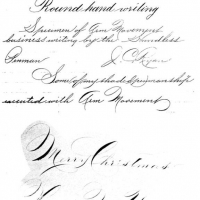 Round hand writing
Specimen of Arm Movement
business writing by the Handless
Penman J. Ryan
Some of my shade penmanship
executed with Arm Movement
Merry Christmas